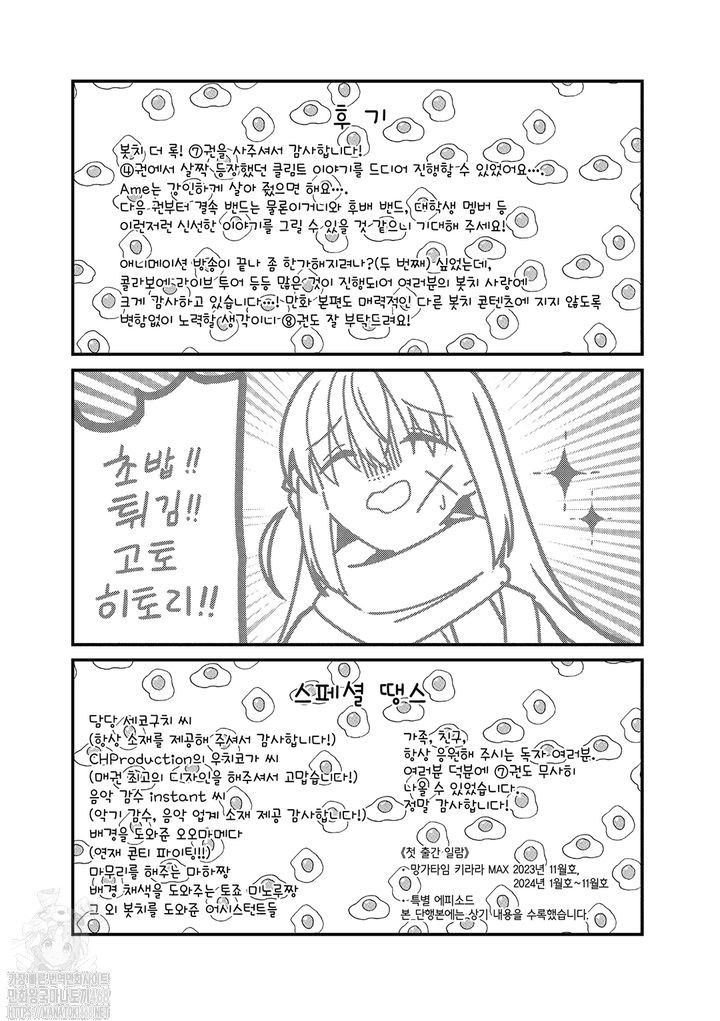 후기
봇치 더 록! ⑦권을 사주셔서 감사합니다!
④권에서 살짝 등장했던 클림트 이야기를 드디어 진행할 수 있었어요….
Ame는 강인하게 살아 줬으면 해요….
다음 권부터 결속 밴드는 물론이거니와 후배 밴드, 대학생 멤버 등
이런저런 신선한 이야기를 그릴 수 있을 것 같으니 기대해 주세요!
애니메이션 방송이 끝나 좀 한가해지려나?(두 번째) 싶었는데,
콜라보에 라이브 투어 등등 많은 것이 진행되어 여러분의 봇치 사랑에
크게 감사하고 있습니다…! 만화 본편도 매력적인 다른 봇치 콘텐츠에 지지 않도록
변함없이 노력할 생각이니 ⑧권도 잘 부탁드려요!
초밥!!
튀김!!
고토
히토리!!
스페셜 땡스
담당 세코구치 씨
(항상 소재를 제공해 주셔서 감사합니다!)
CHProduction의 우치코가 씨
(매권 최고의 디자인을 해주셔서 고맙습니다!)
음악 감수 instant 씨
(악기 감수, 음악 업계 소재 제공 감사합니다!)
배경을 도와준 오오마메다
(연재 콘티 파이팅!!)
마무리를 해주는 마하짱
배경 채색을 도와주는 토죠 미노루짱
그 외 봇치를 도와준 어시스턴트들
가족, 친구,
항상 응원해 주시는 독자 여러분.
여러분 덕분에 ⑦권도 무사히
나올 수 있었습니다.
정말 감사합니다!
《첫 출간 일람》
·망가타임 키라라 MAX 2023년 11월호,
2024년 1월호~11월호
·특별 에피소드
본 단행본에는 상기 내용을 수록했습니다.
가장빠른번역만화사이트
만화왕국마나토끼468
HTTPS://MANATOKI468.NET